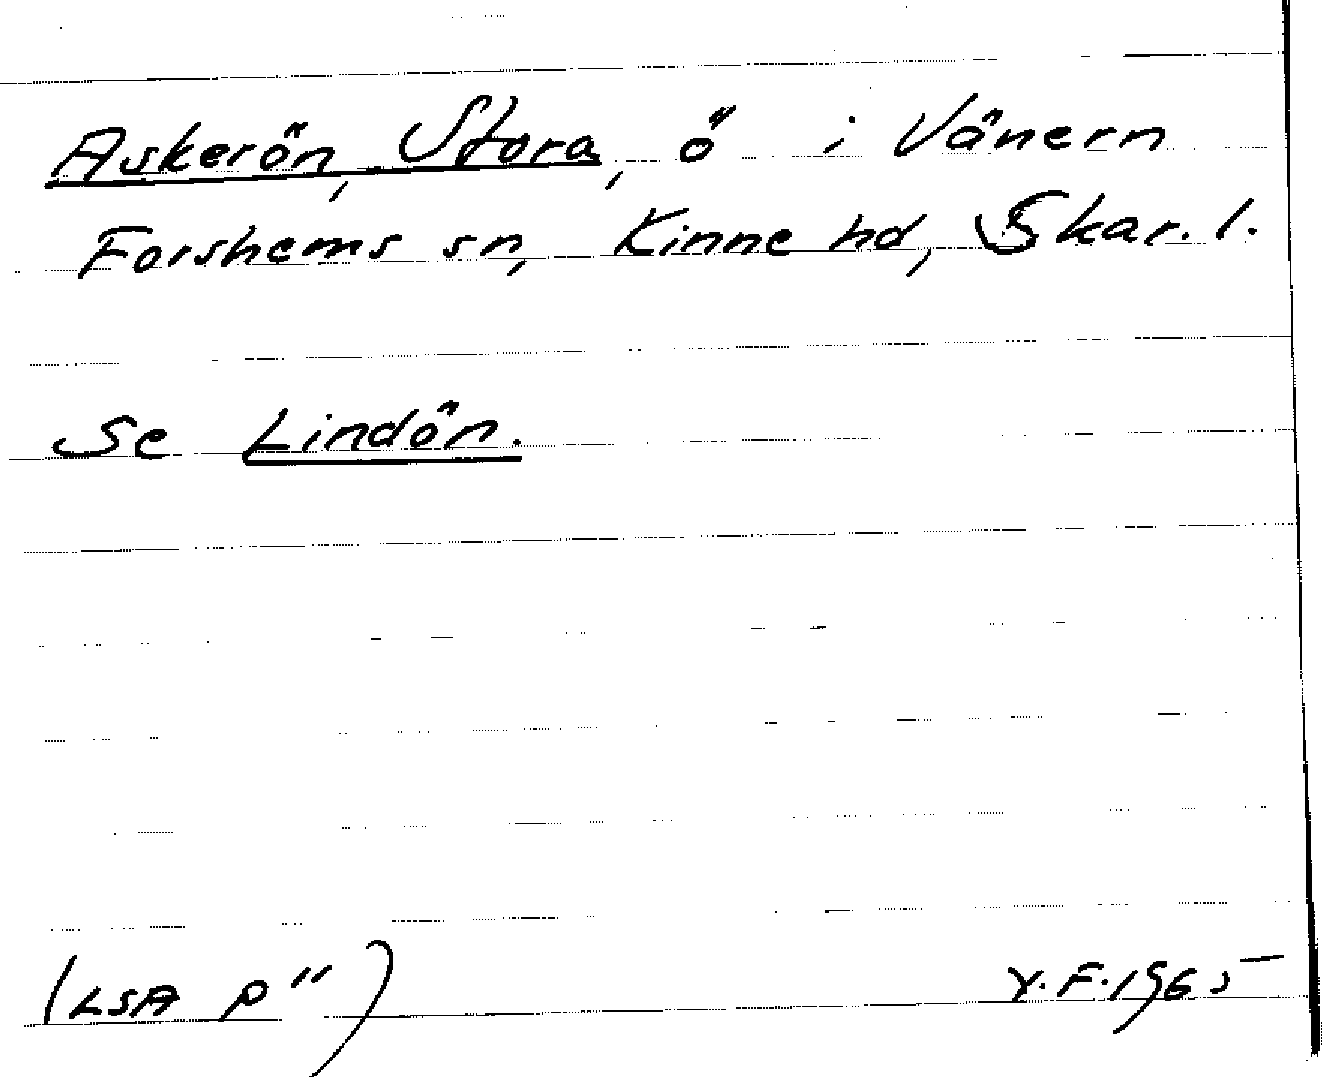 Askerön, Stora, ö i Vänern
Forshems sn, Kinne hd, Skar. l.
Se Lindön.
(LSA P")
Y.F. 1965